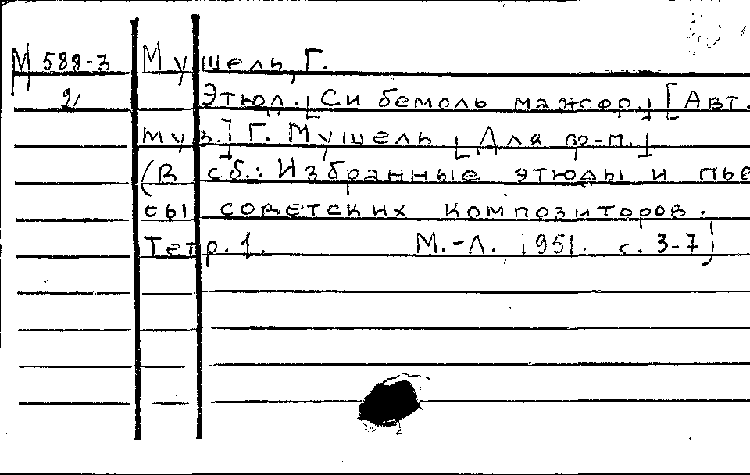 М 588-3 Мушель, Г.
2 Этюд. [Си бемоль мажор.] [Авт.
муз.] Г. Мушель [Для ф-п.]
(В сб.: Избранные этюды и пье
сы советских композиторов.
Тетр. 1. М.-Л. 1951. с. 3-7)